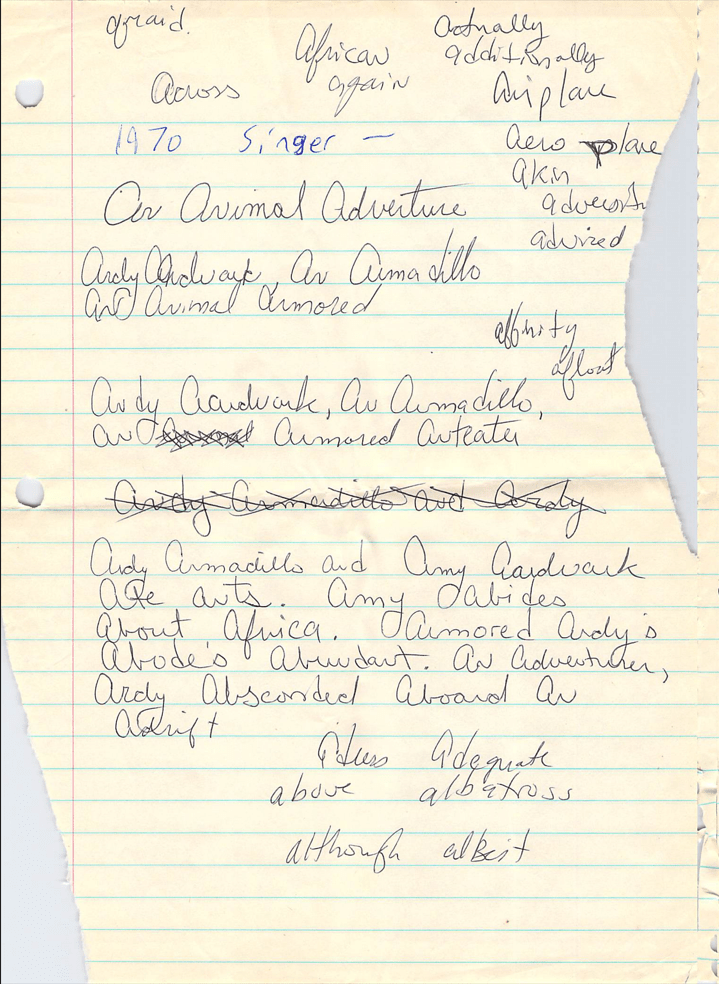 afraid.
Actually
African
additionally
Across
again
Airplane
1970 Singer —
Aero plane
akin
An Animal Adventure
advized
Andy Aardvark, An Armadillo
And Animal Armored
affinity
afloat
Andy Aardvark, An Armadillo,
an Armored Anteater
Andy Armadillo and Andy
Andy Armadillo and Amy Aardvark
Are ants. Amy abides
About Africa. Armored Andy's
Abode's Abundant. An Adventurer,
Andy Absconded Aboard An
Adrift
Adequate
above albatross
although albeit